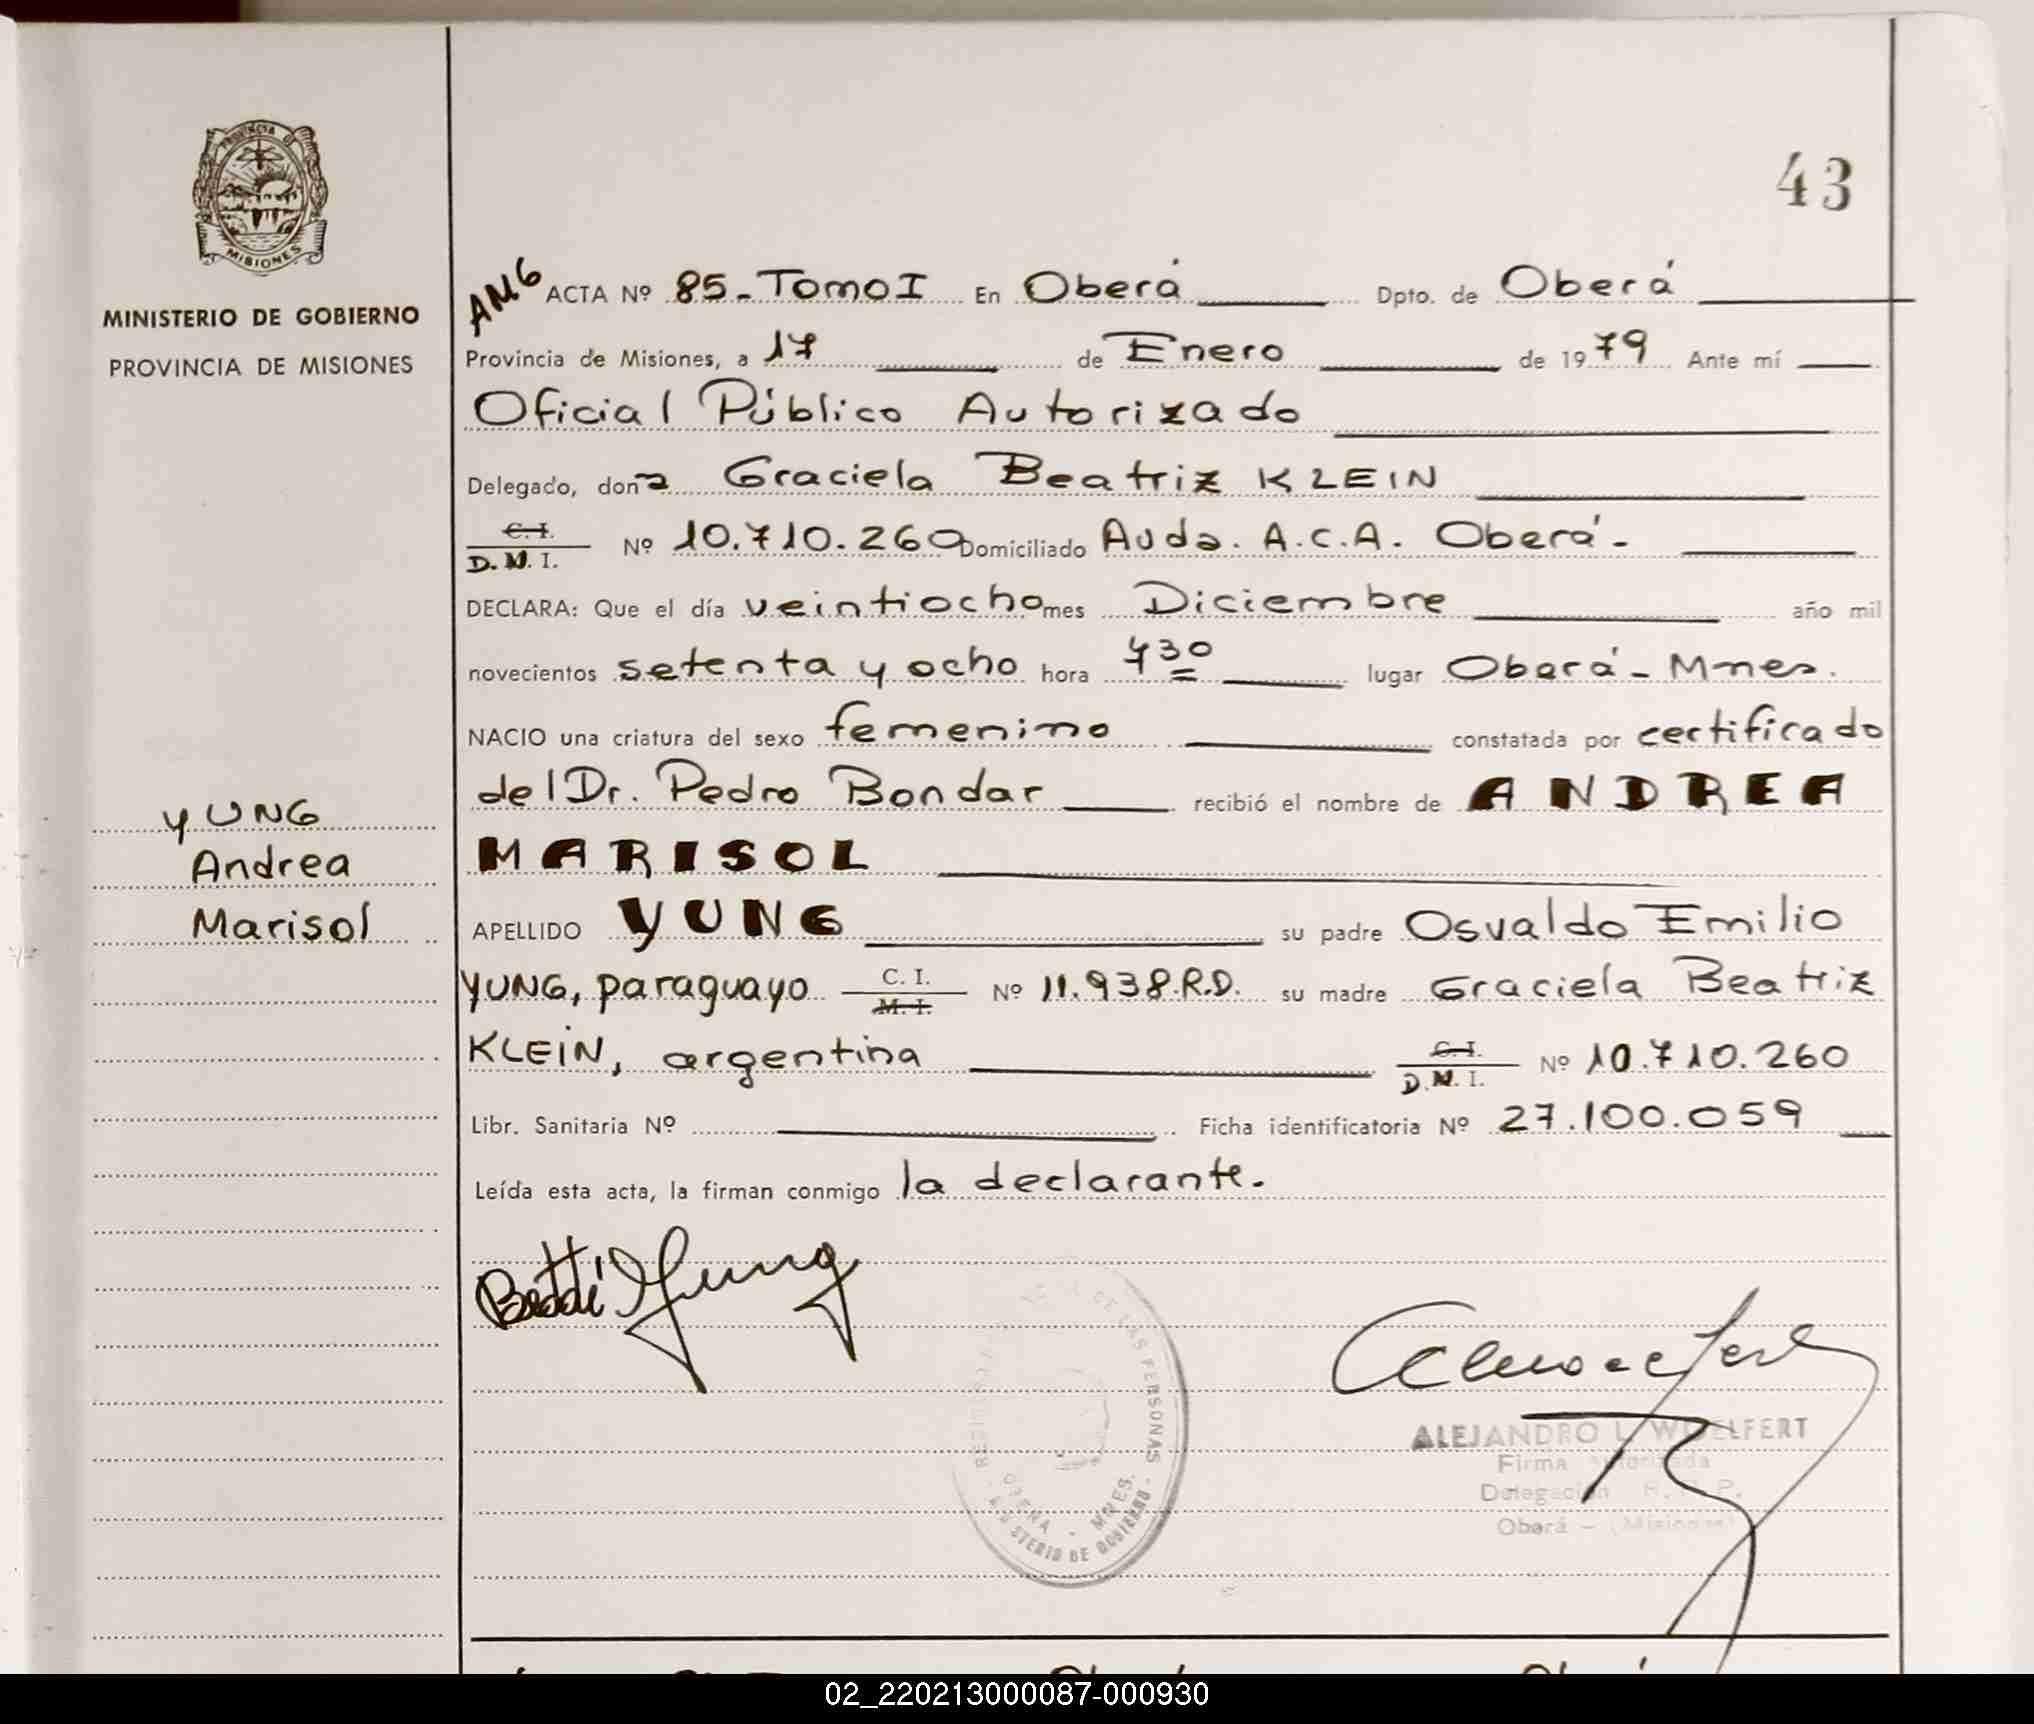 43
PROVINCIA DE
MISIONES
MINISTERIO DE GOBIERNO
PROVINCIA DE MISIONES
YUNG
Andrea
Marisol
AMG ACTA Nº 85-Tomo I En Oberá Dpto. de Oberá
Provincia de Misiones, a 17 de Enero de 1979 Ante mí
Oficial Público Autorizado
Delegado, dona Graciela Beatriz KLEIN
C. I.
D.N.I. Nº 10.710.260 Domiciliado Avda. A.C.A. Oberá-
DECLARA: Que el día veintiocho mes Diciembre año mil
novecientos setenta y ocho hora 730 lugar Oberá - Mnes.
NACIO una criatura del sexo femenino constatada por certificado
del Dr. Pedro Bondar recibió el nombre de ANDREA
MARISOL
APELLIDO YUNG su padre Osvaldo Emilio
YUNG, paraguayo C. I. M. I. Nº 11.938.R.D. su madre Graciela Beatriz
KLEIN, argentina C. I. D.N.I. Nº 10.710.260
Libr. Sanitaria Nº Ficha identificatoria Nº 27.100.059
Leída esta acta, la firman conmigo la declarante.
Yung
DE LAS PERSONAS - MINISTERIO DE GOBIERNO
OBERA - MNES.
ALEJANDRO L. WOELFERT
Firma autorizada
Delegación R. P.
Oberá - (Misiones)
02_220213000087-000930